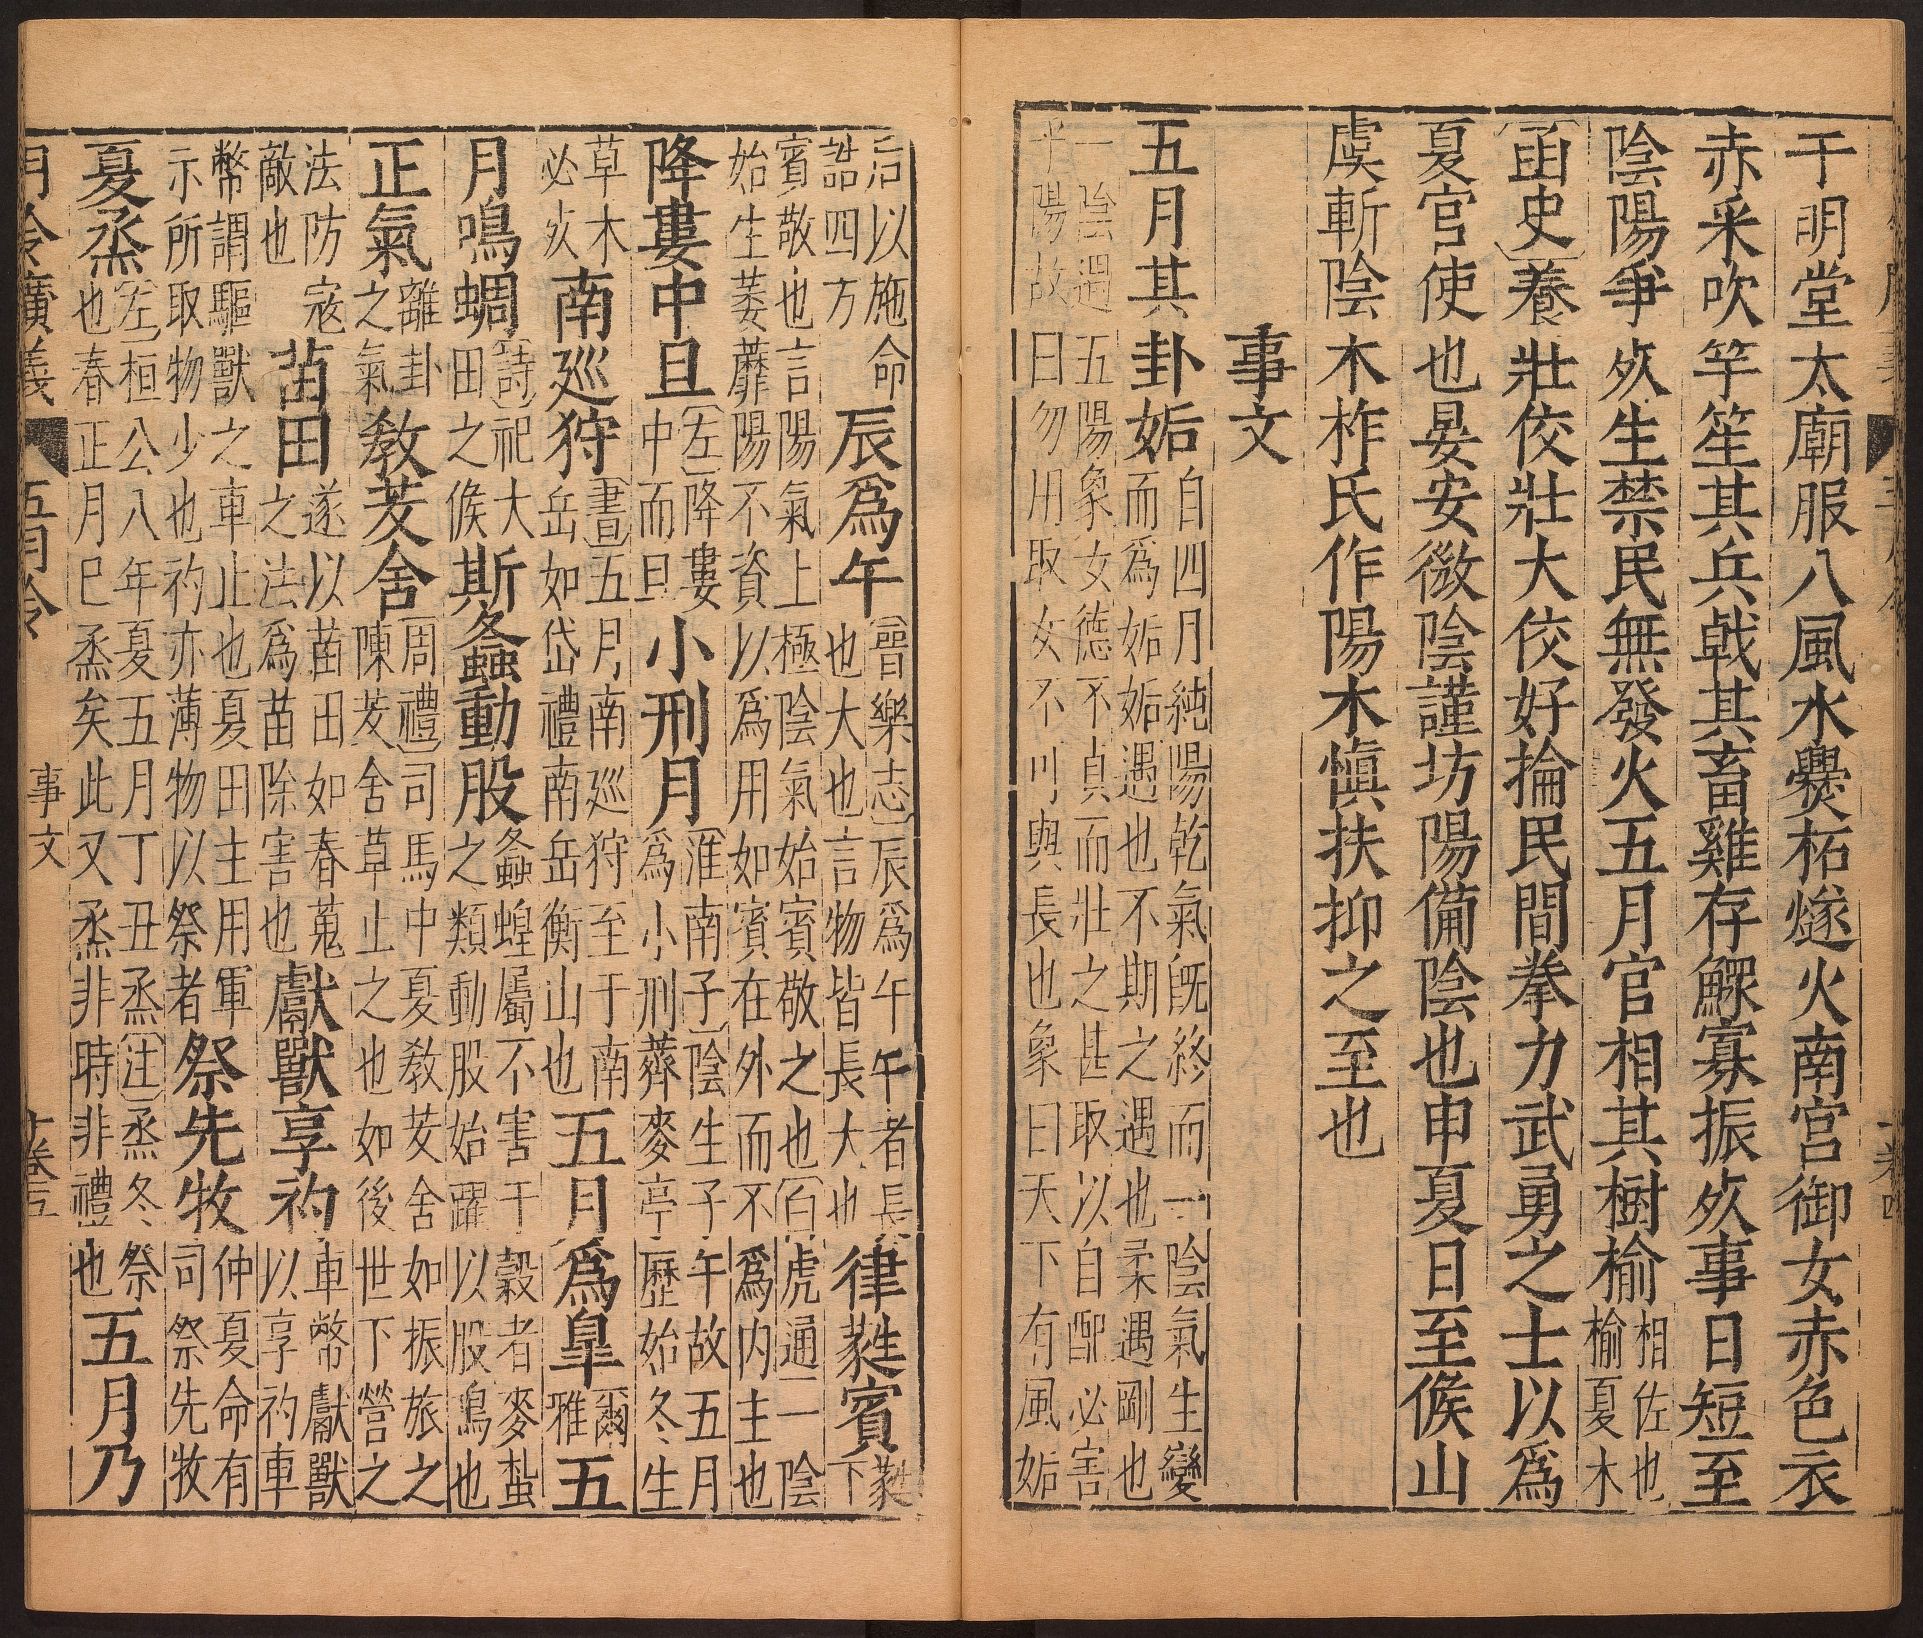 于明堂太廟服八風水爨柘燧火南宮御女赤色衣
赤采吹竽笙其兵戟其畜雞存鰥寡振死事日短至
陰陽爭死生禁民無發火五月官相其樹榆
相佐也
榆夏木
函史養壯佼壯大佼好掄民間拳力武勇之士以爲
夏官使也晏安微陰謹坊陽備陰也申夏日至候山
虞斬陰木柞氏作陽木愼扶抑之至也
事文
五月其卦姤
自四月純陽乾氣旣終而一陰氣生變
而爲姤姤遇也不期之遇也柔遇剛也
一陰遇五陽象女德不貞而壯之甚取以自配必害
乎陽故曰勿用取女不可與長也象曰天下有風姤
后以施命
誥四方
辰爲午
晉樂志辰爲午午者長
也大也言物皆長大也
律蕤賓
蕤下
賓敬也言陽氣上極陰氣始賓敬之也白虎通一陰
始生萎蘼陽不資以爲用如賓在外而不爲内主也
降婁中旦
左降婁
中而旦
小刑月
淮南子陰生子午故五月
爲小刑薺麥亭歷始冬生
草木
必死
南巡狩
書五月南巡狩至于南
岳如岱禮南岳衡山也
五月爲皐
爾
雅
五
月鳴蜩
詩祀大
田之候
斯螽動股
螽蝗屬不害于穀者麥蚻
之類動股始躍以股鳴也
正氣
離卦
之氣
敎茇舍
周禮司馬中夏敎茇舍如振旅之
陳茇舍草止之也如後世下營之
法防宼
敵也
苗田
遂以苗田如春蒐
之法爲苗除害也
獻獸享礿
車幣獻獸
以享礿車
幣謂驅獸之車止也夏田主用軍
示所取物少也礿亦薄物以祭者
祭先牧
仲夏命有
司祭先牧
夏烝
左桓公八年夏五月丁丑烝注烝冬祭
也春正月巳烝矣此又烝非時非禮也
五月乃
月令廣義
五月令
事文
卷